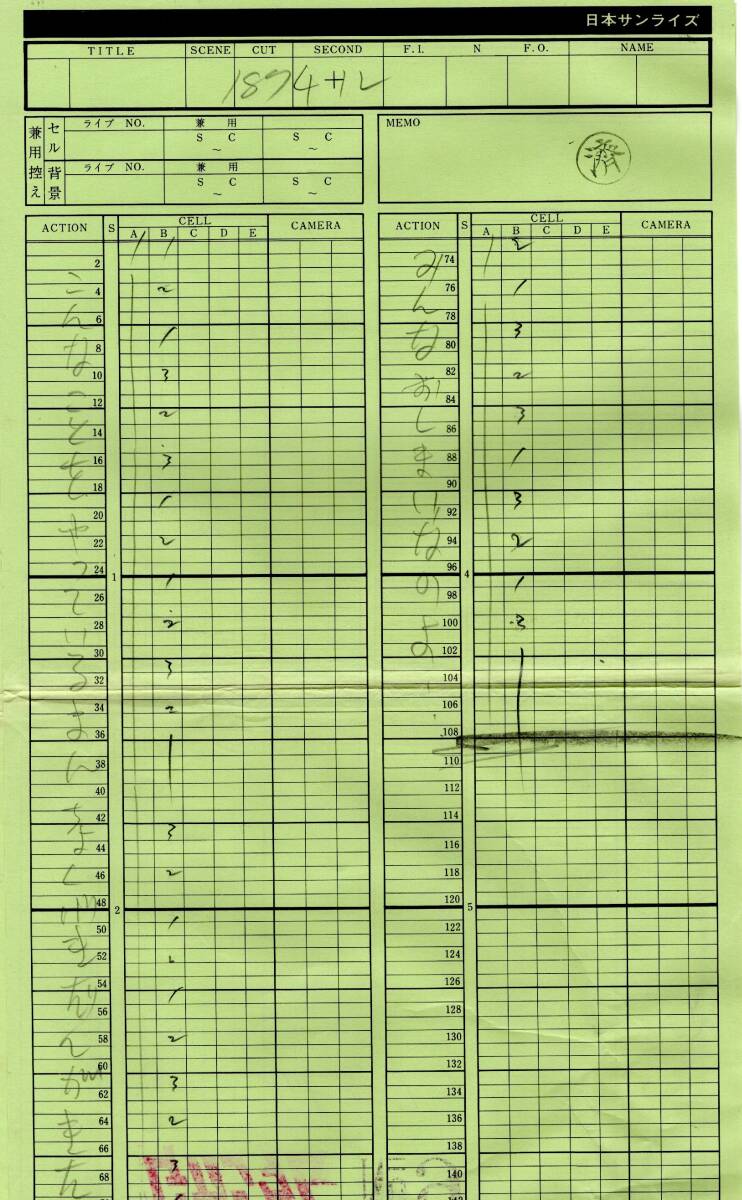 日本サンライズ
TITLE SCENE CUT SECOND F.I. N F.O. NAME
187 4+12
兼用控え
セル ライブ NO. 兼 用
S C S C
~ ~
背景 ライブ NO. 兼 用
S C S C
~ ~
MEMO
済
ACTION S CELL CAMERA
A B C D E
1 1
2
4 2
6
8 1
10 3
12
14 2
16 3
18
20 1
22 2
24
1
26 1
28 2
30
32 3
34 2
36
38
40
42
44 3
46 2
48
2
50 1
52
54
56 1
58 2
60
62 3
64 2
66
68 3
こんなことを
やっている
ACTION S CELL CAMERA
A B C D E
74 2
76 1
78
80 3
82 2
84
86 3
88 1
90
92 3
94 2
96
4
98 1
100 3
102
104
106
108
110
112
114
116
118
120
5
122
124
126
128
130
132
134
136
138
140
みんな
おしまいなのよ